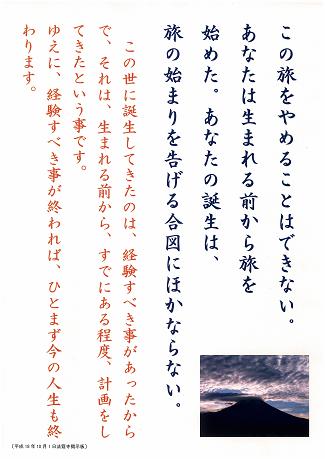 この旅をやめることはできない。
あなたは生まれる前から旅を
始めた。あなたの誕生は、
旅の始まりを告げる合図にほかならない。
この世に誕生してきたのは、経験すべき事があったから
で、それは、生まれる前から、すでにある程度、計画をし
てきたという事です。
ゆえに、経験すべき事が終われば、ひとまず今の人生も終
わります。